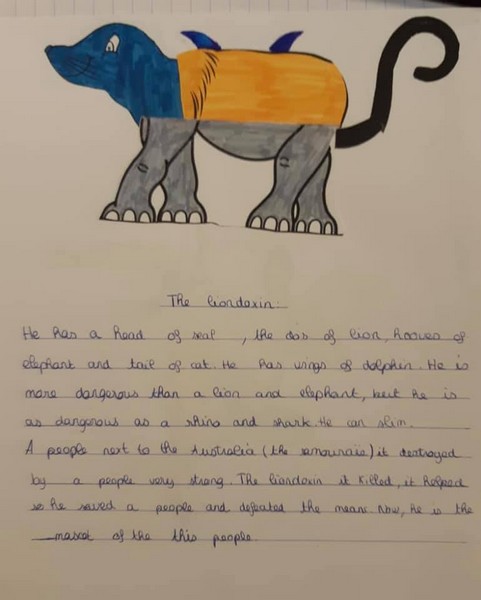 The liondoxin:
He has a head of seal, the dos of lion, hooves of
elephant and tail of cat. He has wings of dolphin. He is
more dangerous than a lion and elephant, but he is
as dangerous as a rhino and shark. He can slim.
A people next to the Australia (the samouraïe) it destroyed
by a people very strong. The liondoxin it killed, it helped
so he saved a people and defeated the means. Now, he is the
mascot of the this people.